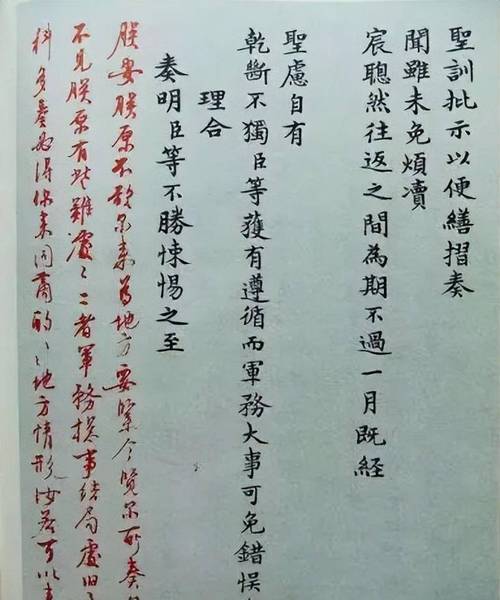 聖訓批示以便繕摺奏
聞雖未免煩瀆
宸聰然往返之間為期不過一月既經
聖慮自有
乾斷不獨臣等獲有遵循而軍務大事可免錯悮
理合
奏明臣等不勝悚惕之至
朕安朕原不欲尔来為地方要緊今覽尔所奏
不見朕原有些難處〻二者軍務揔事結局處旧
科多奏必得你来同商酌〻地方情形汝若可以来